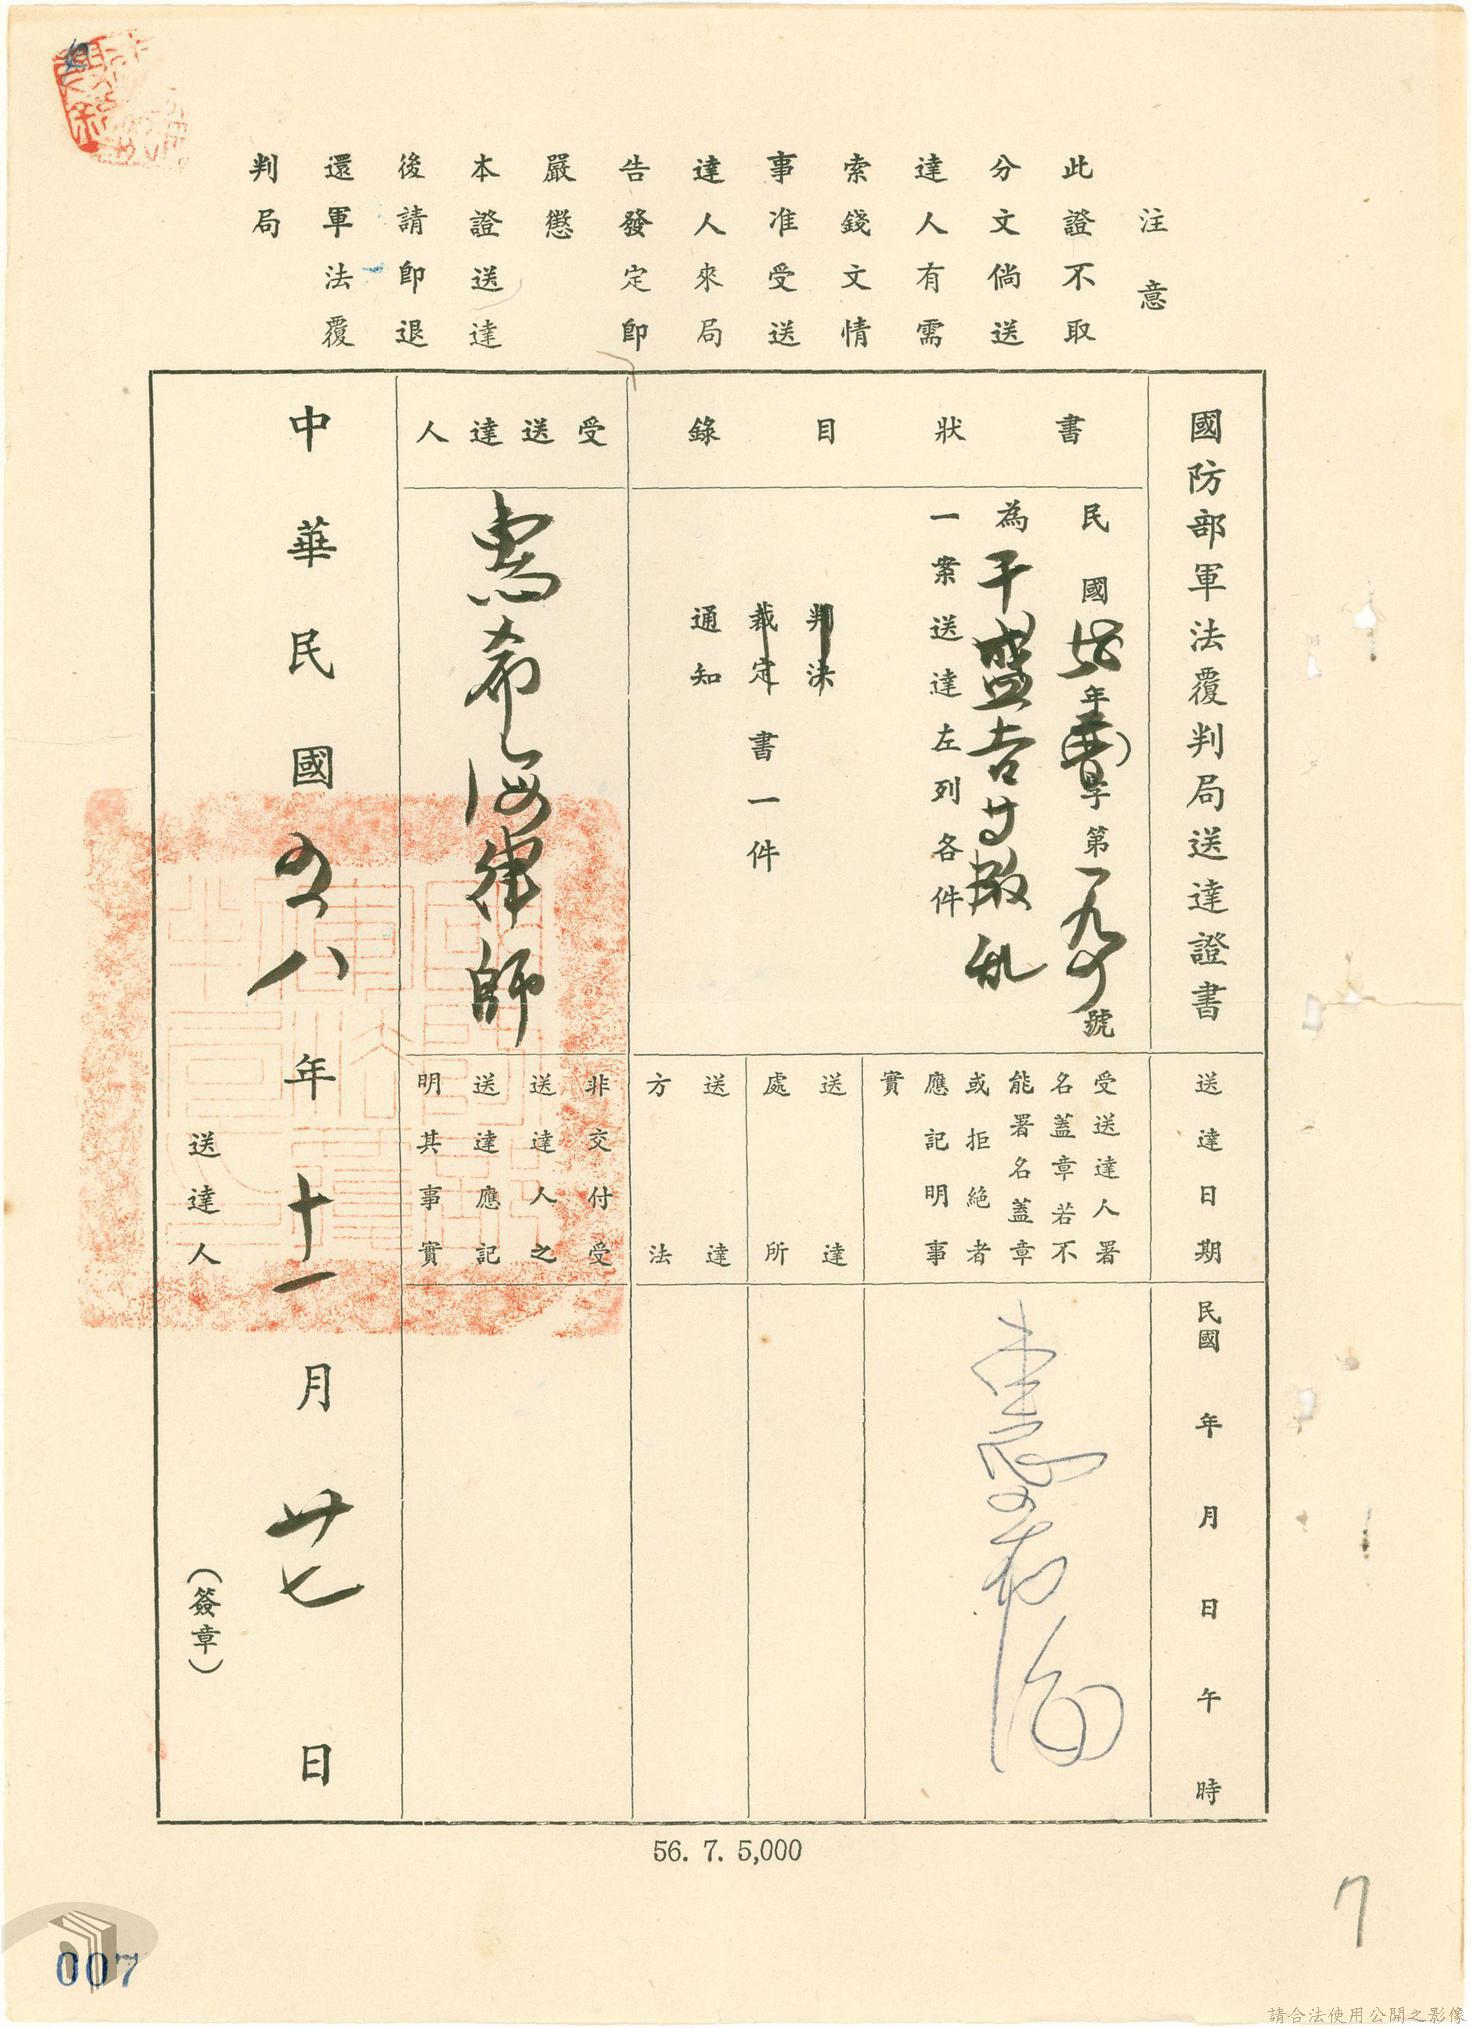 注意
此證不取
分文倘送
達人有需
索錢文情
事准受送
達人來局
告發定即
嚴懲
本證送達
後請即退
還軍法覆
判局
國防部軍法覆判局送達證書
書狀目錄
民國58年字第一九四號
為于盛吉等叛乱
一案送達左列各件
判決
裁定書一件
通知
受送達人
喬希海律師
送達日期
民國 年 月 日 午 時
受送達人署
名蓋章若不
能署名蓋章
或拒絕者
應記明事
實
送達
處所
送達
方法
非交付受
送達人之
送達應記
明其事實
中華民國五八年十一月廿七日
送達人
(簽章)
56. 7. 5,000
7
007
請合法使用公開之影像